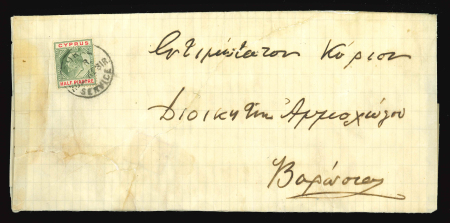 CYPRUS
HALF PIASTRE
SERVICE
Εντιμώτατον Κύριον
Διοικητήν Αμμοχώστου
Βαρώσια